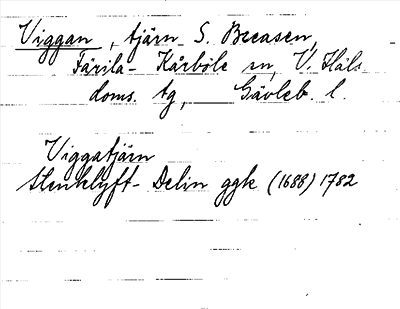 Viggan, tjärn S. Breasen,
Färila-Kårböle sn, V. Häls.
doms. tg, Gävleb. l.
Viggatjärn
Stenklyft-Delin ggk (1688) 1782